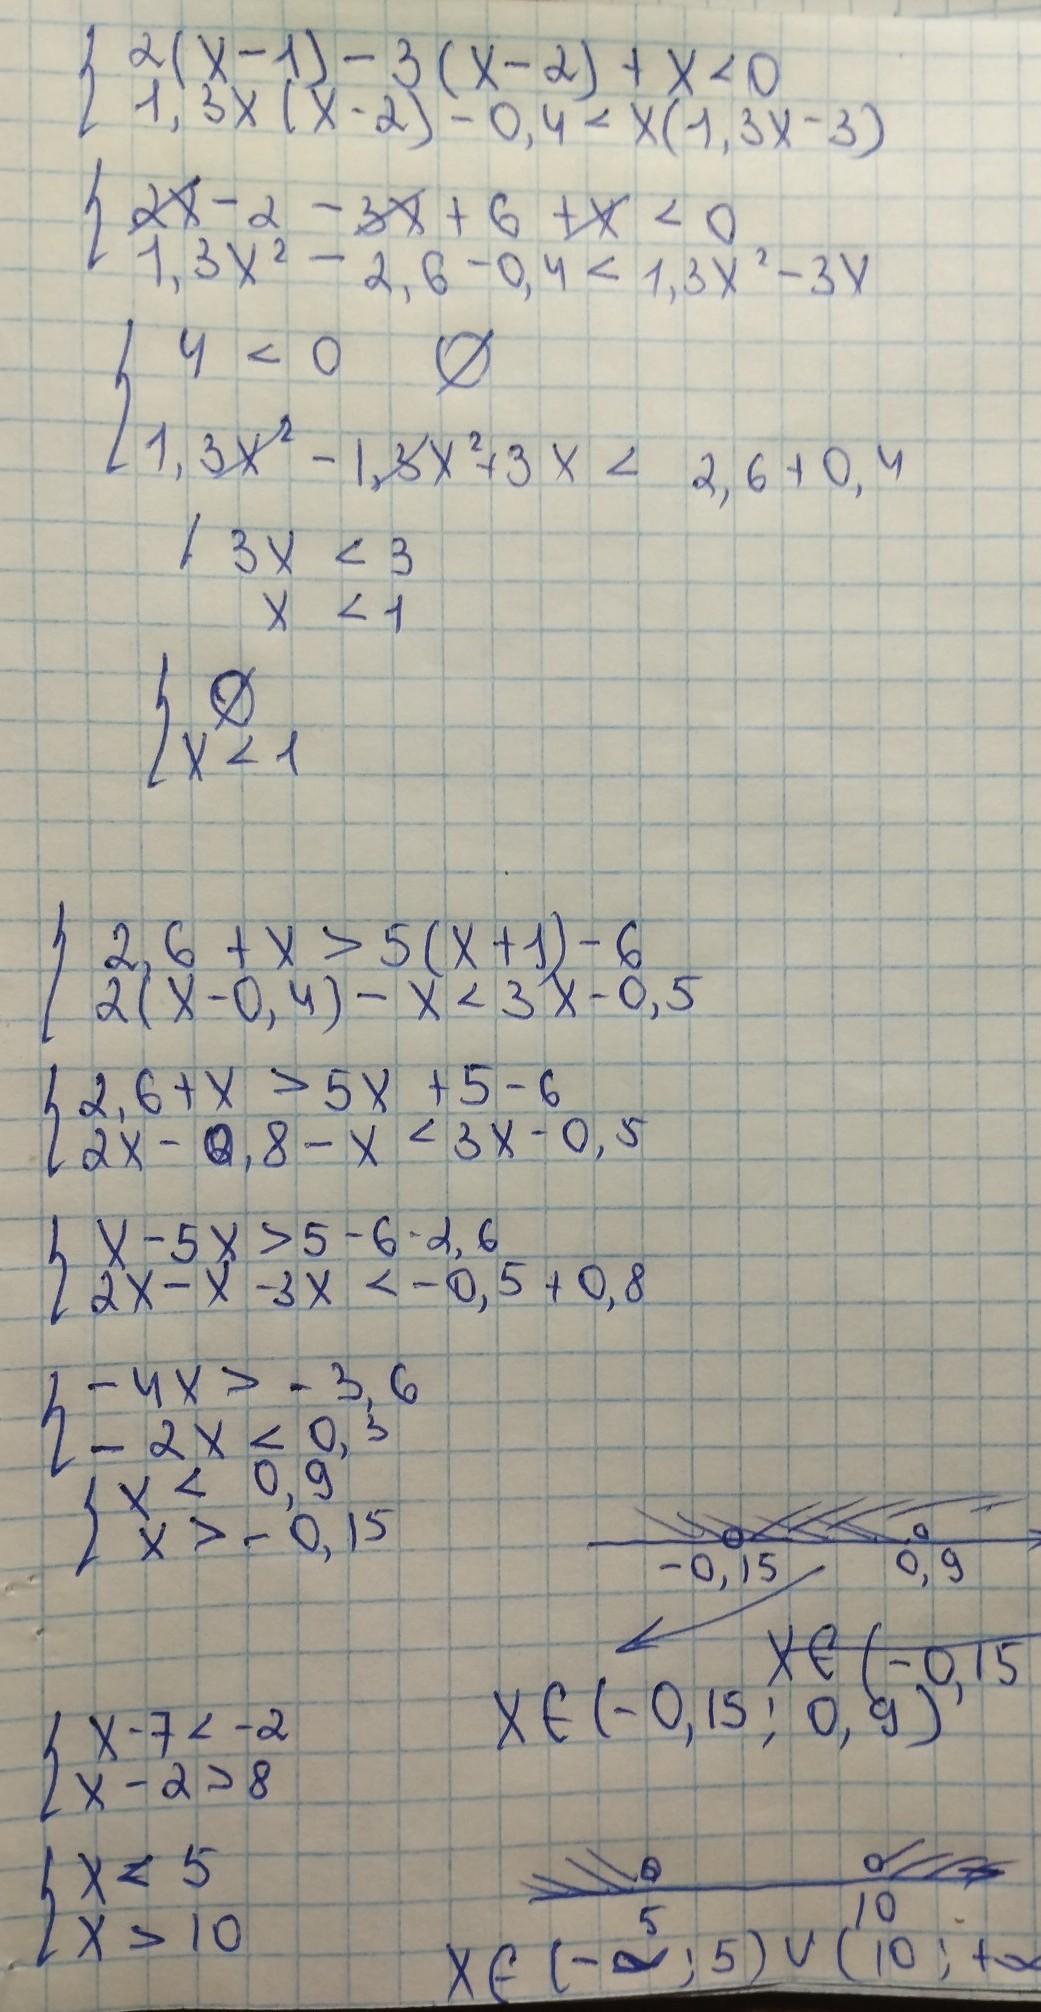 { 2(x-1) - 3(x-2) + x < 0
1,3x(x-2) - 0,4 < x(1,3x-3)
{ 2x - 2 - 3x + 6 + x < 0
1,3x² - 2,6 - 0,4 < 1,3x² - 3x
{ 4 < 0 ∅
1,3x² - 1,3x² + 3x < 2,6 + 0,4
{ 3x < 3
x < 1
{ ∅
x < 1
{ 2,6 + x > 5(x+1) - 6
2(x-0,4) - x < 3x - 0,5
{ 2,6 + x > 5x + 5 - 6
2x - 0,8 - x < 3x - 0,5
{ x - 5x > 5 - 6 - 2,6
2x - x - 3x < -0,5 + 0,8
{ -4x > -3,6
-2x < 0,3
{ x < 0,9
x > -0,15
-0,15 0,9
x ∈ (-0,15
x ∈ (-0,15; 0,9)
{ x - 7 < -2
x - 2 > 8
{ x < 5
x > 10
5 10
x ∈ (-∞; 5) ∪ (10; +∞